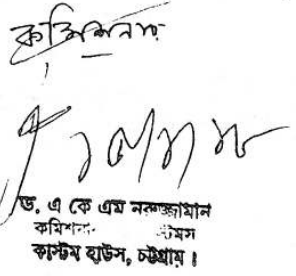 কমিশনার
ড. এ কে এম নুরুজ্জামান
কমিশনার
কাস্টম হাউস, চট্টগ্রাম।